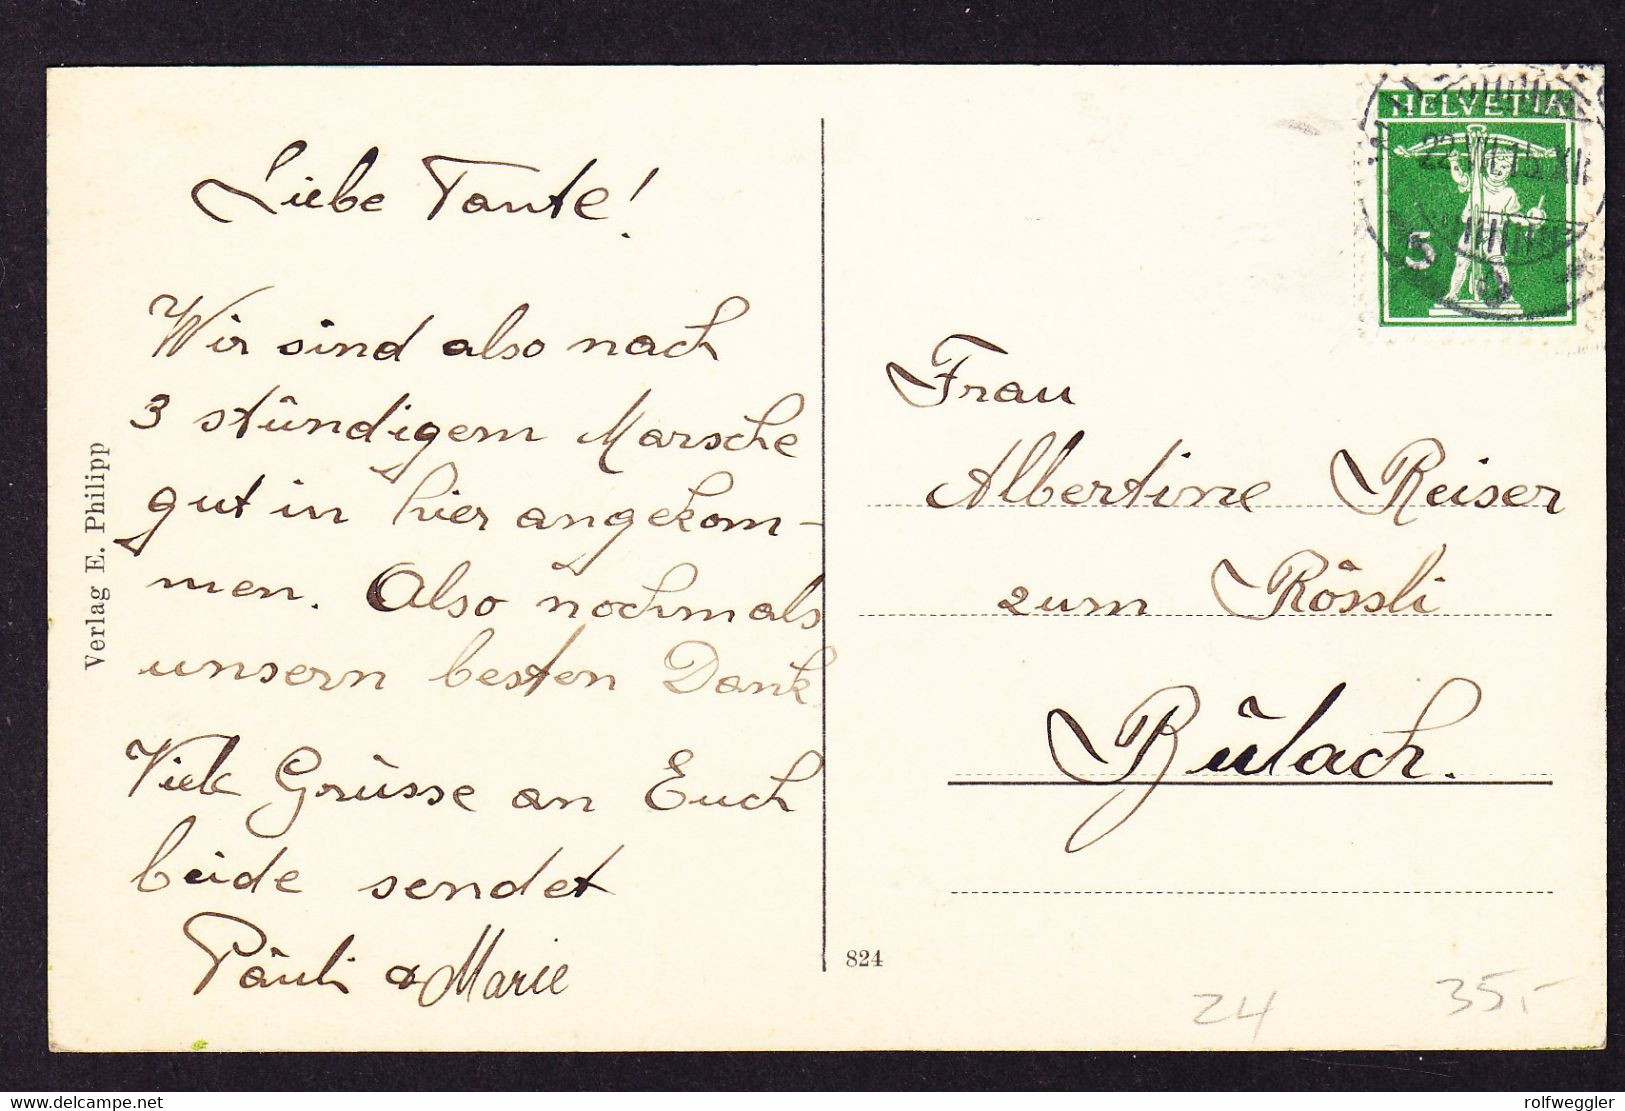 Liebe Tante!
Wir sind also nach
3 stündigem Marsche
gut in hier angekom-
men. Also nochmals
unsern besten Dank
Viele Grüsse an Euch
beide sendet
Päuli & Marie
Verlag E. Philipp
824
HELVETIA
22.VII.15.XII
5
Frau
Albertine Reiser
zum Rössli
Bülach.
24
35,-
delcampe.net
rolfweggler